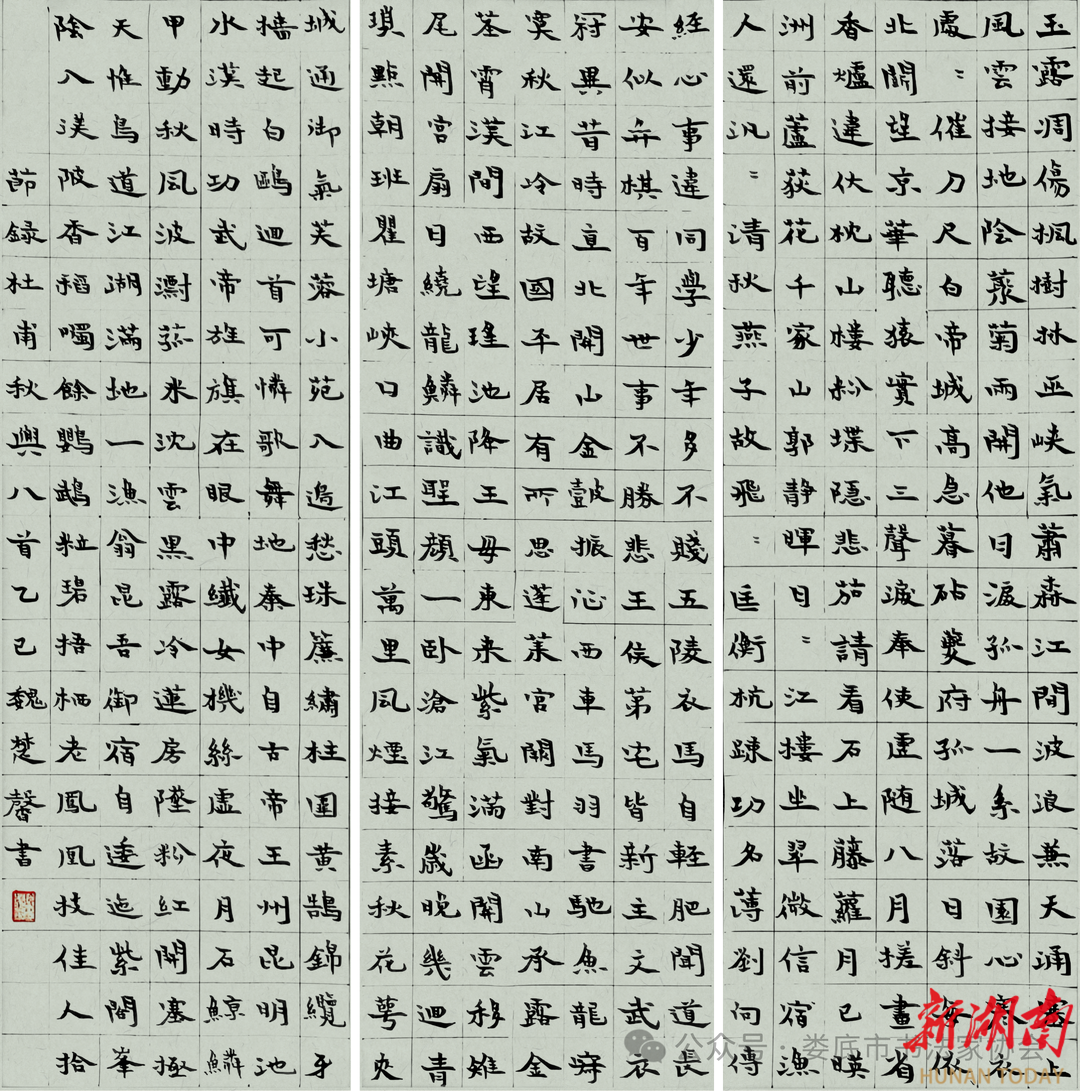 玉露凋傷楓樹林巫峽氣蕭森江間波浪兼天涌塞上
風雲接地陰叢菊兩開他日淚孤舟一系故園心寒衣
處=催刀尺白帝城高急暮砧夔府孤城落日斜每依
北闕望京華聽猿實下三聲淚奉使虛随八月搓畫省
香爐違伏枕山樓粉堞隱悲茄請看石上藤蘿月已暎
洲前蘆荻花千家山郭静暉日=江樓坐翠微信宿漁
人還汎=清秋燕子故飛=匡衡杭疎功名薄劉向傳
經心事違同學少年多不賤五陵衣馬自軽肥聞道長
安似弈棋百年世事不勝悲王侯第宅皆新主文武衣
冠異昔時直北開山金鼓振征西車馬羽書馳魚龍寂
寞秋江冷故國平居有所思蓬莱宮闕對南山承露金
茎霄漢間西望瑤池降王母東来紫氣滿函關雲移雉
尾開宮扇日繞龍鱗識聖顏一卧滄江驚歲晚幾迴青
瑣點朝班瞿塘峽口曲江頭萬里風煙接素秋花萼夾
城通御氣芙蓉小苑入邊愁珠簾繡柱圍黄鵠錦纜牙
檣起白鷗迴首可憐歌舞地秦中自古帝王州昆明池
水漢時功武帝旌旗在眼中織女機絲虛夜月石鯨鱗
甲動秋風波漂菰米沈雲黑露冷蓮房墜粉紅關塞極
天惟鳥道江湖滿地一漁翁昆吾御宿自逶迤紫閣峯
陰入渼陂香稻噣餘鸚鵡粒碧梧栖老鳳凰枝佳人拾
節録杜甫秋興八首乙巳魏楚馨書
新湖南
HUNAN TODAY
公众号：娄底市书法家协会